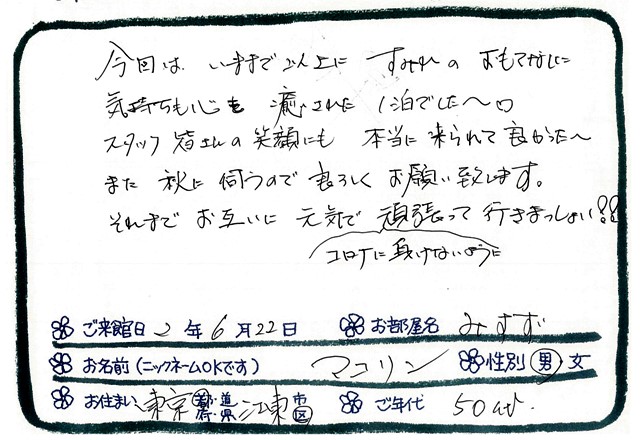 今回は、いままで以上に すみれの おもてなしに
気持ちも心も 癒された 1泊でした〜
スタッフ 皆さんの 笑顔にも 本当に 来られて 良かった〜
また 秋に 伺うので 宜ろしく お願い致します。
それまで お互いに 元気で 頑張って 行きまっしょい!!
コロナに負けないように
ご来館日 2 年 6 月 22 日 お部屋名 みすず
お名前(ニックネームOKです) マコリン 性別 男 女
お住まい 東京 都・道 府・県 江東 市 区 ご年代 50